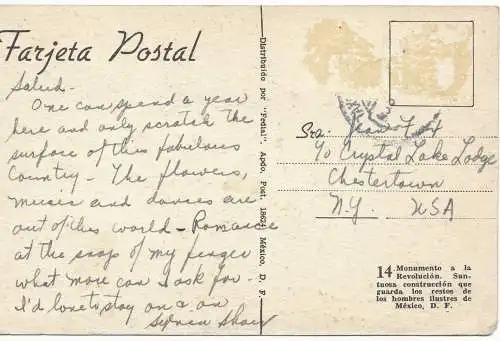 Tarjeta Postal
Salud-
One can spend a year
here and only scratch the
surface of this fabulous
Country - The flowers,
music and dances are
out of this world - Romance
at the snap of my finger
what more can I ask for -
I'd love to stay on & on
Shaw
Distribuido por "Postal". Apdo. Post. 1862, México, D. F.
Sra. Jean
c/o Crystal Lake Lodge
Chestertown
N.Y. USA
14. Monumento a la
Revolución. Sun-
tuosa construcción que
guarda los restos de
los hombres ilustres de
México, D. F.